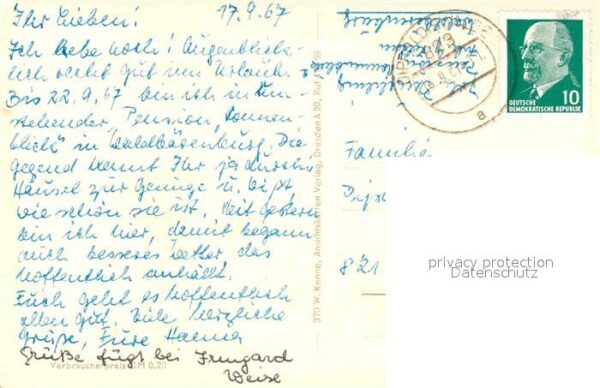 Ihr Lieben! 17.9.67
Ich lebe noch! Augenblick-
lich recht gut im Urlaub.
Bis 22.9.67 bin ich in um-
stehender Pension, "Sonnen-
blick" in Waldbärenburg. Die
Gegend kennt Ihr ja durch's
Häusel zur Genüge u. wißt
wie schön sie ist. Seit gestern
bin ich hier, damit begann
auch besseres Wetter, das
hoffentlich anhält.
Euch geht es hoffentlich
allen gut. Viele herzliche
Grüße, Eure Hanna
Grüße fügt bei Irmgard
Weise
Verbraucherpreis DM 0,20
370 W. Kenne, Ansichtskarten Verlag, Dresden A 20, Ruf
Waldbärenburg
823
a
DEUTSCHE
DEMOKRATISCHE REPUBLIK
10
Familie
821
privacy protection
Datenschutz